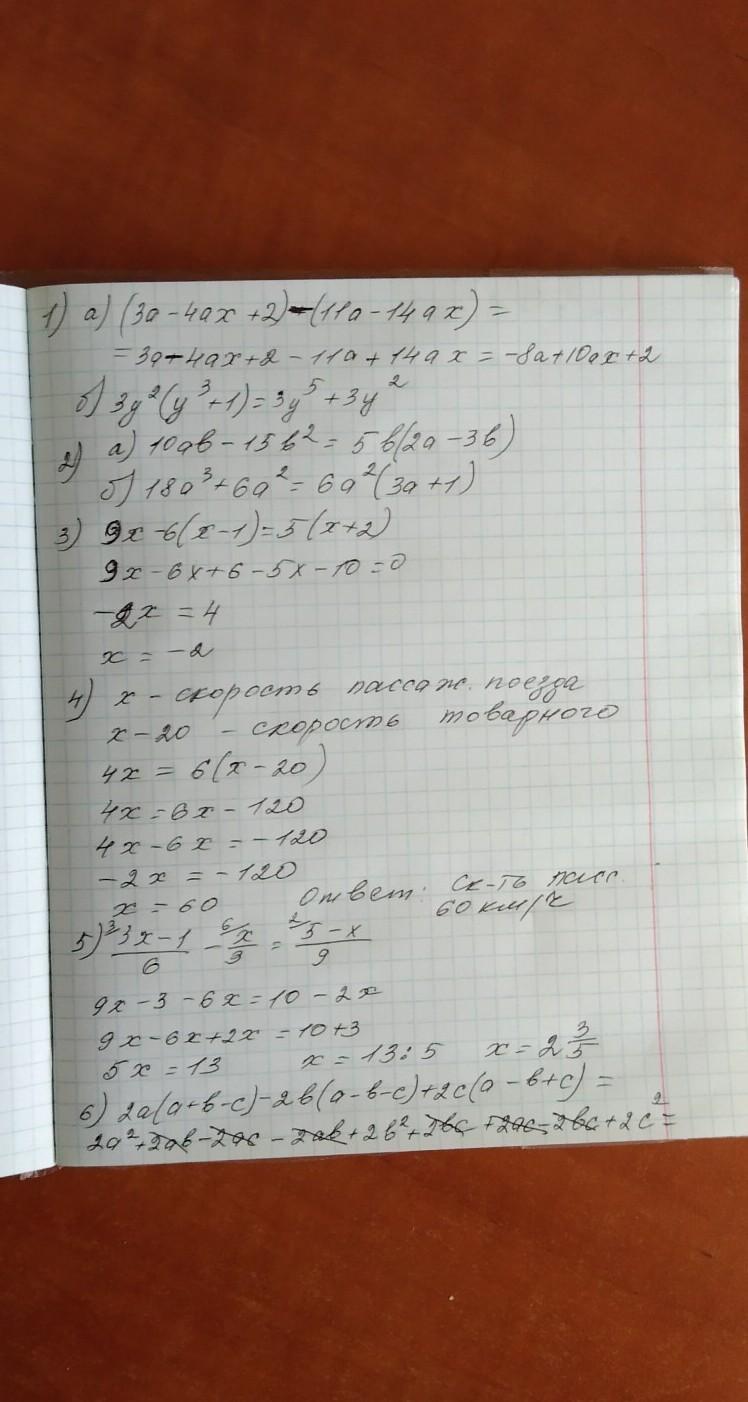 1) а) (3a - 4ax + 2) - (11a - 14ax) =
= 3a - 4ax + 2 - 11a + 14ax = -8a + 10ax + 2
б) 3y²(y³ + 1) = 3y⁵ + 3y²
2) а) 10ab - 15b² = 5b(2a - 3b)
б) 18a³ + 6a² = 6a²(3a + 1)
3) 9x - 6(x - 1) = 5(x + 2)
9x - 6x + 6 - 5x - 10 = 0
-2x = 4
x = -2
4) x - скорость пассаж. поезда
x - 20 - скорость товарного
4x = 6(x - 20)
4x = 6x - 120
4x - 6x = -120
-2x = -120
x = 60 Ответ: ск-ть пасс. 60 км/ч
5) ³⁄ (3x - 1)/6 - ⁶⁄ x/3 = ²⁄ (5 - x)/9
9x - 3 - 6x = 10 - 2x
9x - 6x + 2x = 10 + 3
5x = 13 x = 13 : 5 x = 2 3/5
6) 2a(a + b - c) - 2b(a - b - c) + 2c(a - b + c) =
2a² + 2ab - 2ac - 2ab + 2b² + 2bc + 2ac - 2bc + 2c² =